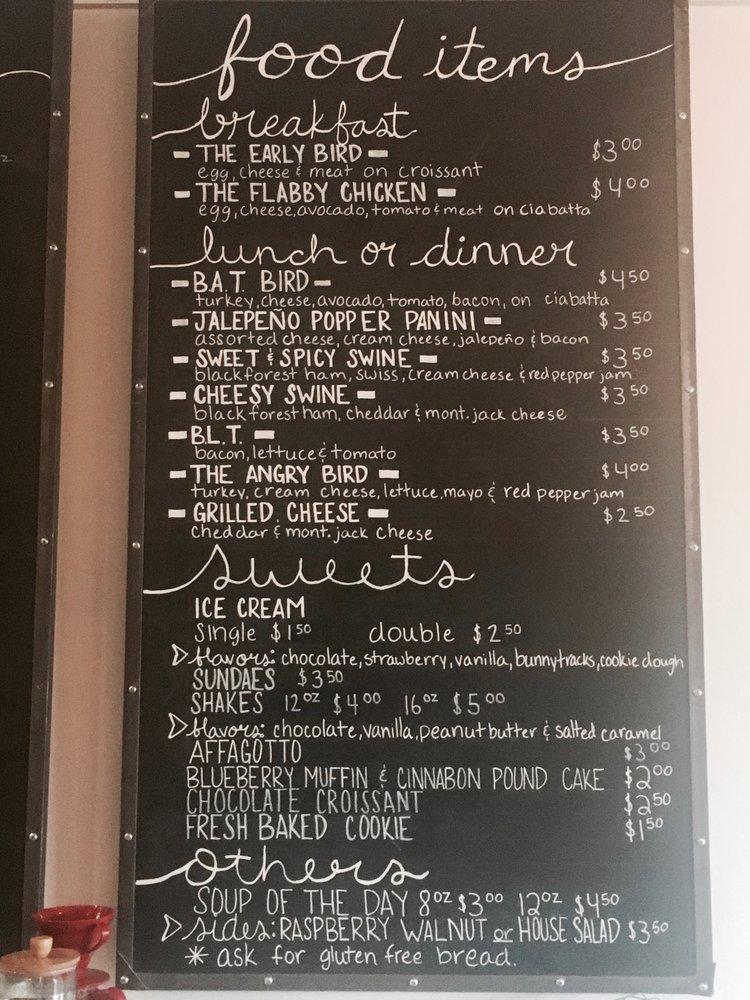 food items
breakfast
- THE EARLY BIRD - $3.00
egg, cheese & meat on croissant
- THE FLABBY CHICKEN - $4.00
egg, cheese, avocado, tomato & meat on ciabatta
lunch or dinner
- B.A.T. BIRD - $4.50
turkey, cheese, avocado, tomato, bacon, on ciabatta
- JALEPEÑO POPPER PANINI - $3.50
assorted cheese, cream cheese, jalepeño & bacon
- SWEET & SPICY SWINE - $3.50
black forest ham, swiss, cream cheese & red pepper jam
- CHEESY SWINE - $3.50
black forest ham, cheddar & mont. jack cheese
- B.L.T. - $3.50
bacon, lettuce & tomato
- THE ANGRY BIRD - $4.00
turkey, cream cheese, lettuce, mayo & red pepper jam
- GRILLED CHEESE - $2.50
cheddar & mont. jack cheese
sweets
ICE CREAM
Single $1.50 double $2.50
▷ flavors: chocolate, strawberry, vanilla, bunnytracks, cookie dough
SUNDAES $3.50
SHAKES 12oz $4.00 16oz $5.00
▷ flavors: chocolate, vanilla, peanut butter & salted caramel
AFFAGOTTO $3.00
BLUEBERRY MUFFIN & CINNABON POUND CAKE $2.00
CHOCOLATE CROISSANT $2.50
FRESH BAKED COOKIE $1.50
others
SOUP OF THE DAY 8oz $3.00 12oz $4.50
▷ sides: RASPBERRY WALNUT or HOUSE SALAD $3.50
* ask for gluten free bread.